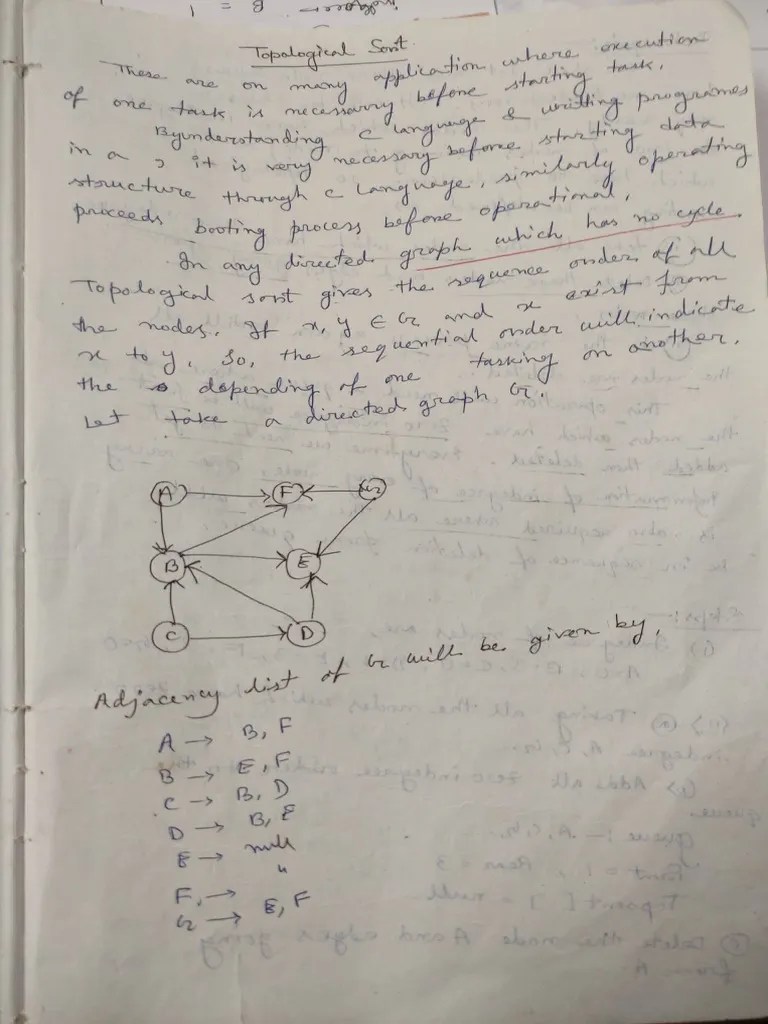 Topological Sort
These are on many application where execution
of one task is necessarry before starting task.
Byunderstanding C language & writting programes
in a , it is very necessary before starting data
structure through C language, similarly operating
proceeds booting process before operational.
In any directed graph which has no cycle.
Topological sort gives the sequence order of all
the nodes. If x, y ∈ G and x exist from
x to y, so, the sequential order will indicate
the depending of one tasking on another.
Let take a directed graph G.
A F G
B E
C D
Adjacency list of G will be given by,
A → B, F
B → E, F
C → B, D
D → B, E
E → null
F, → "
G → E, F